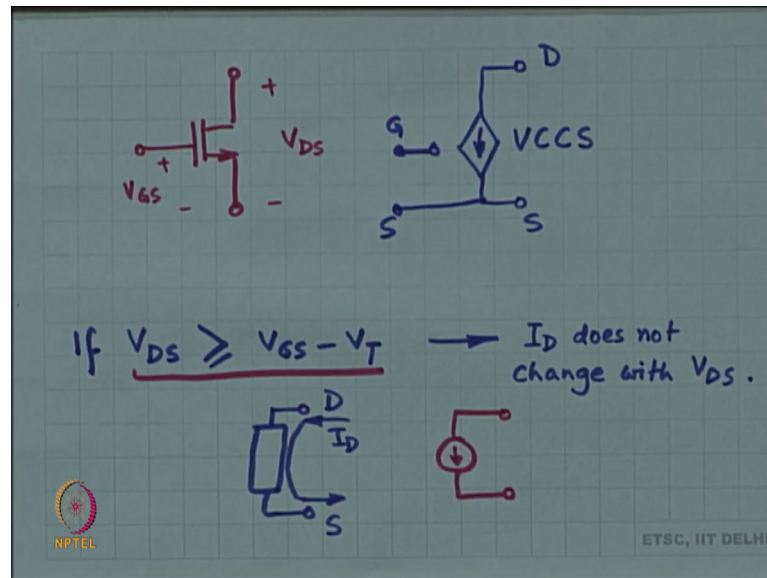 +
D
V_DS
G
VCCS
+
V_GS
-
-
S
S
If V_DS ≥ V_GS - V_T → I_D does not
change with V_DS.
D
I_D
S
NPTEL
ETSC, IIT DELHI